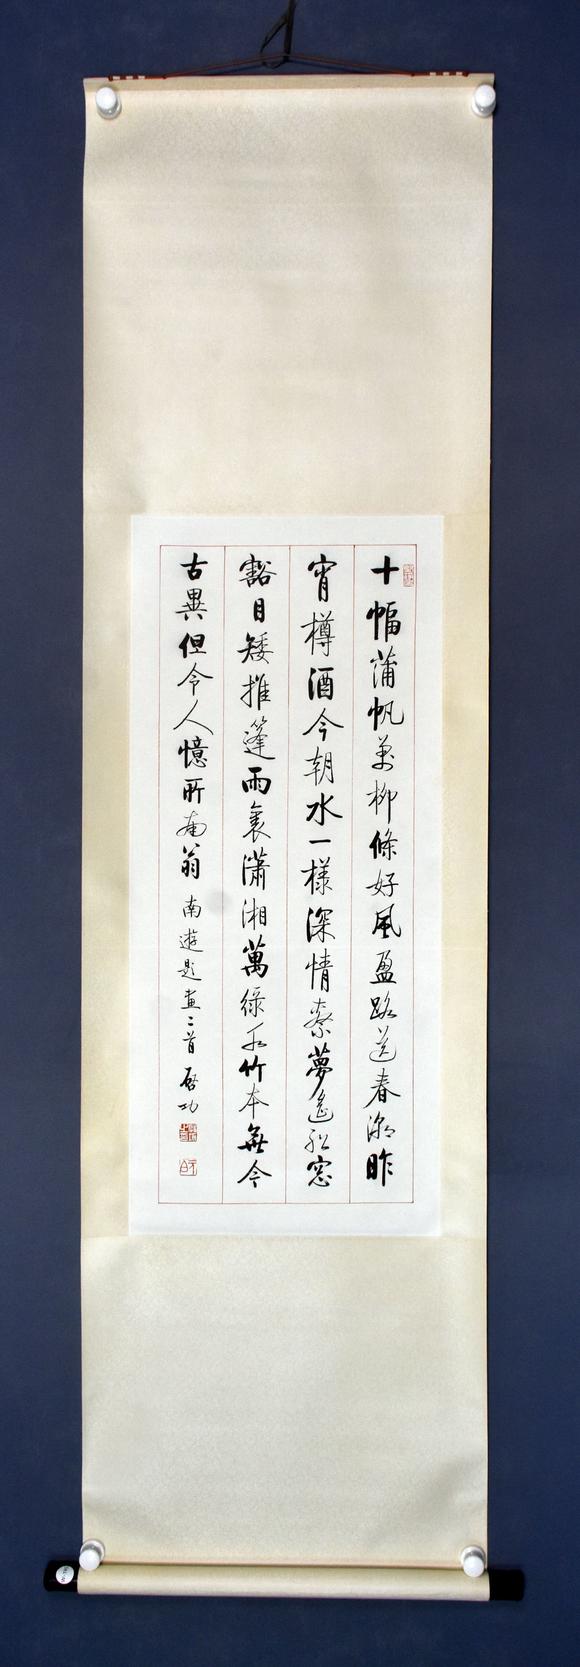 十幅蒲帆萬柳條好風盈路送春潮昨
宵樽酒今朝水一樣深情夢遙船窓
豁目矮推篷雨裏瀟湘萬綠竹本無今
古異但令人憶所南翁 南遊題畫二首 啓功